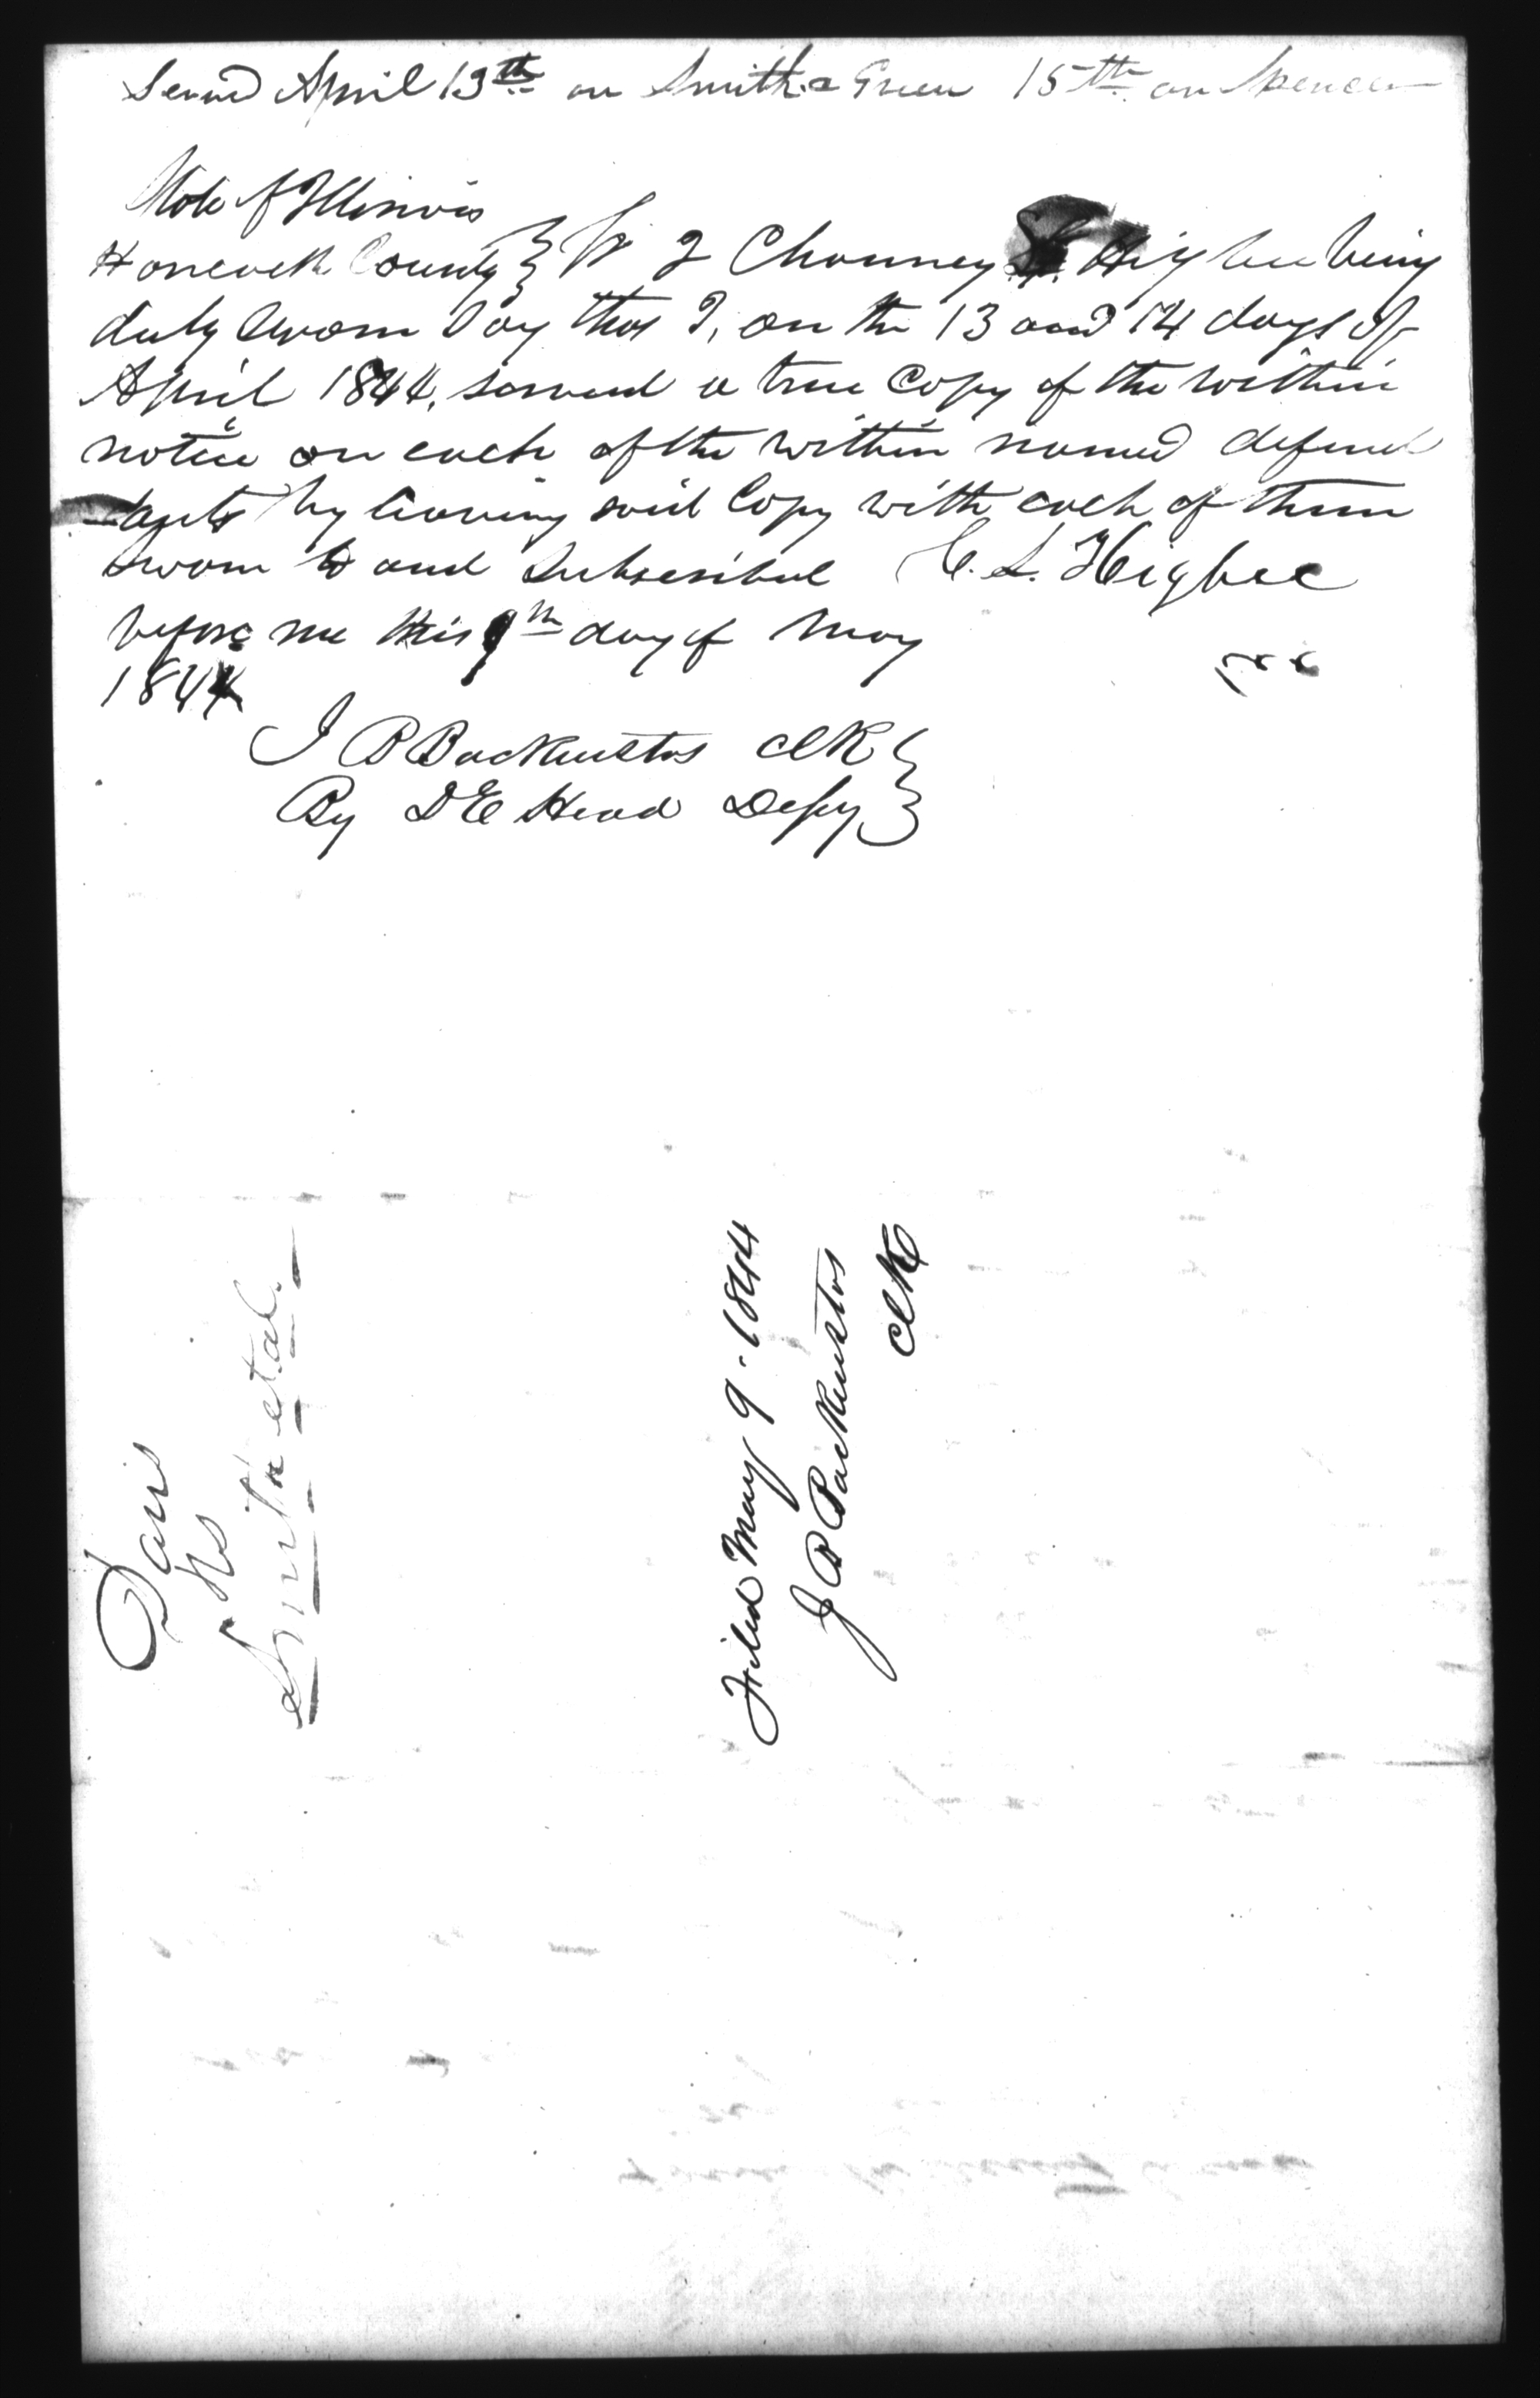 Served April 13th on Smith & Green 15th on Spencer
State of Illinois
Hancock County } I Chauncey L. Higbee being
duly sworn Say that I, on the 13 and 14 days of
April 1844, served a true Copy of the within
notice on each of the within named defend
dants by leaving said Copy with each of them
Sworn to and Subscribed C. L. Higbee
before me this 9th day of May
1844
J B Backenstos Clk }
By D E Head Depy }
Davis
vs
Smith et al.
Filed May 9. 1844
J B Backenstos
Clk